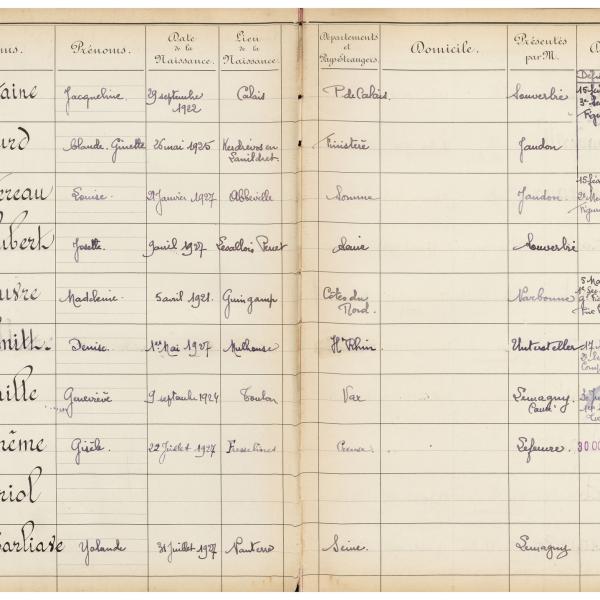 ms. Prénoms. Date de la Naissance. Lieu de la Naissance. Départements et Pays étrangers. Domicile. Présentés par M.
taine Jacqueline. 29 septembre 1922 Calais P. de Calais. Souverbie
urd Claude. Ginette 26 mai 1925 Finistère Jaudon
ereau Louise. 21 Janvier 1927 Abbeville Somme Jaudon.
ubert Josette. 9 avril 1927 Levallois Perret Seine Souverbie
uvre Madeleine. 5 avril 1921. Guingamp Côtes du Nord. Narbonne
mitt. Denise. 1er Mai 1927 Mulhouse Ht Rhin Untersteller
ille Geneviève 9 septembre 1924 Toulon Var Lemagny.
rême Gisèle. 22 Juillet 1927 Fresselines Creuse. Lefeuvre.
riol
arliave Yolande 31 Juillet 1927 Nanterre Seine. Lemagny